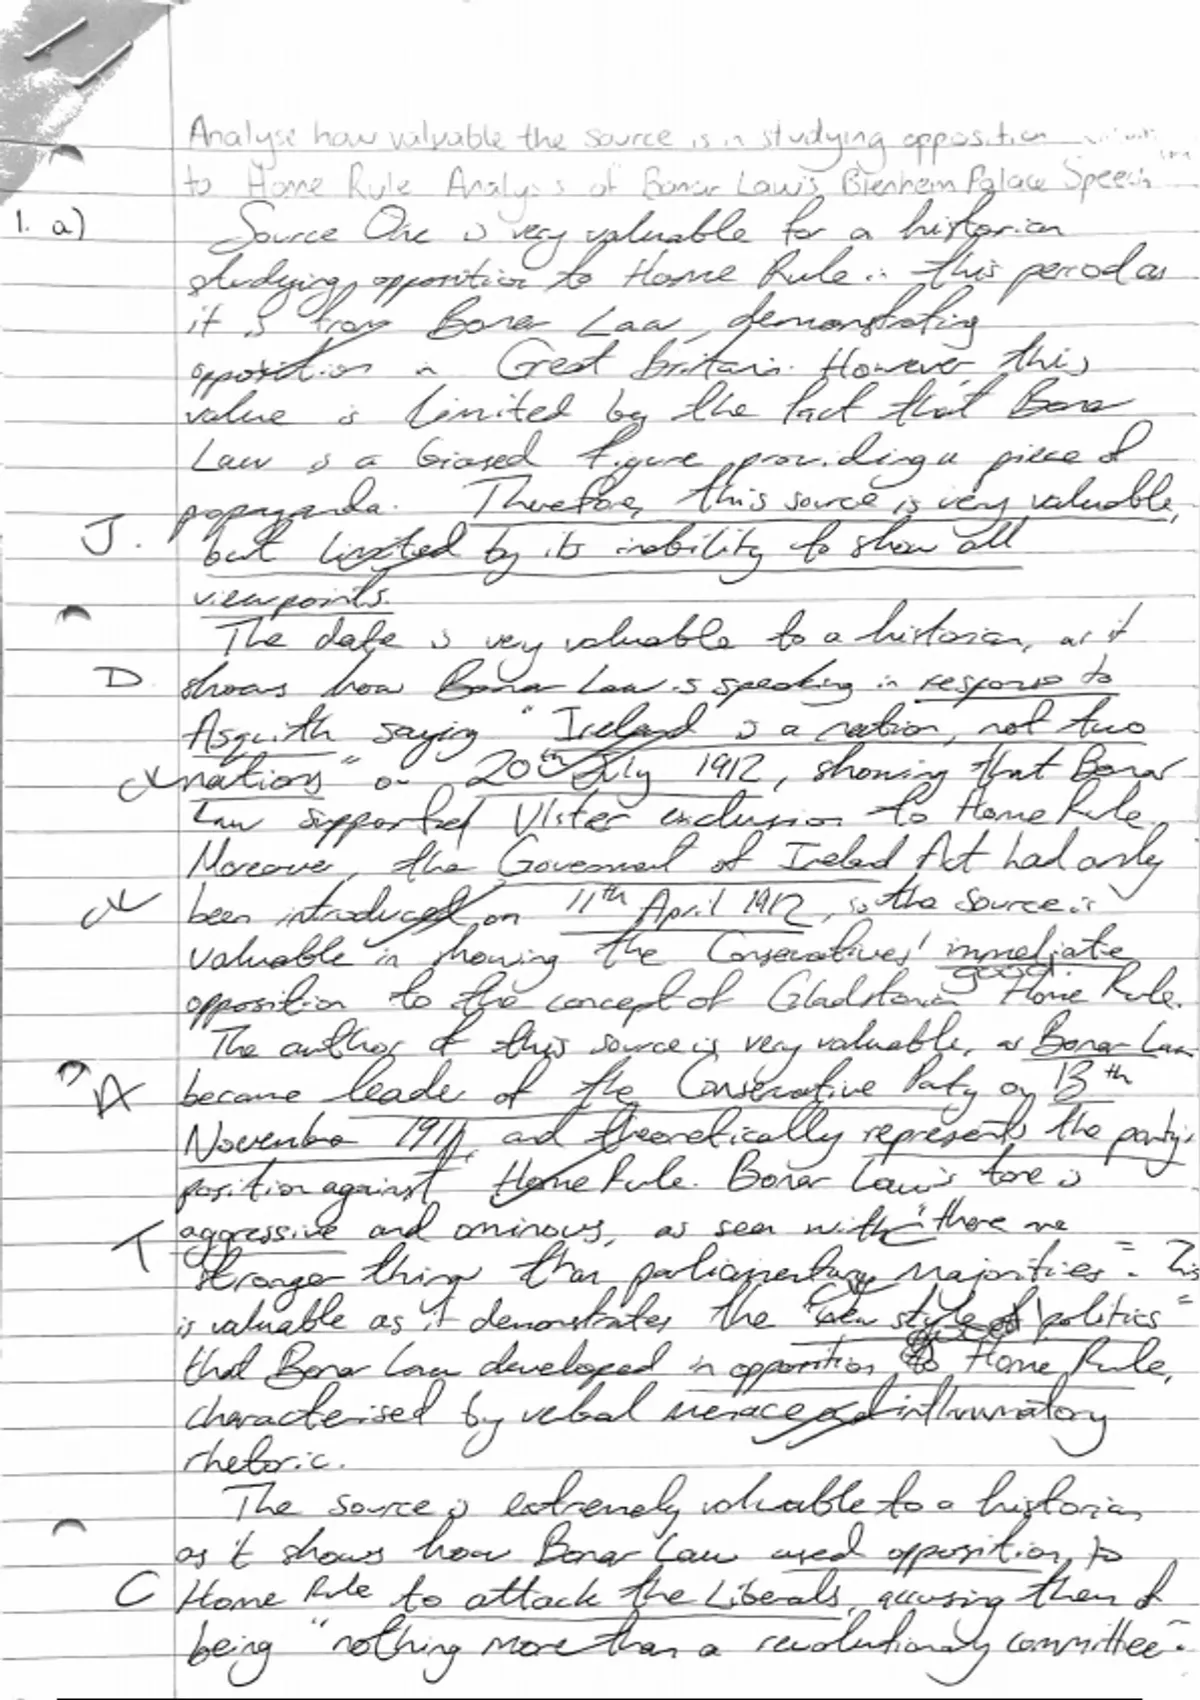 Analyse how valuable the source is in studying opposition
to Home Rule Analysis of Bonar Law's Blenheim Palace Speech
1. a) Source One is very valuable for a historian
studying opposition to Home Rule in this period as
it is from Bonar Law, demonstrating
opposition in Great Britain. However, this
value is limited by the fact that Bonar
Law is a biased figure providing a piece of
propaganda. Therefore, this source is very valuable,
J. but limited by its inability to show all
viewpoints.
The date is very valuable to a historian, as it
D shows how Bonar Law is speaking in response to
Asquith saying "Ireland is a nation, not two
nations" on 20th July 1912, showing that Bonar
Law supported Ulster exclusion to Home Rule.
Moreover, the Government of Ireland Act had only
been introduced on 11th April 1912, so the source is
valuable in showing the Conservatives' immediate
good.
opposition to the concept of Gladstonian Home Rule.
The author of this source is very valuable, as Bonar Law
A became leader of the Conservative Party on 13th
November 1911, and theoretically represents the party's
position against Home Rule. Bonar Law's tone is
aggressive and ominous, as seen with "there are
T stronger things than parliamentary majorities". This
is valuable as it demonstrates the "new style of politics"
that Bonar Law developed in opposition to Home Rule,
characterised by verbal menace and inflammatory
rhetoric.
The source is extremely valuable to a historian,
as it shows how Bonar Law used opposition to
C Home Rule to attack the Liberals, accusing them of
being "nothing more than a revolutionary committee".